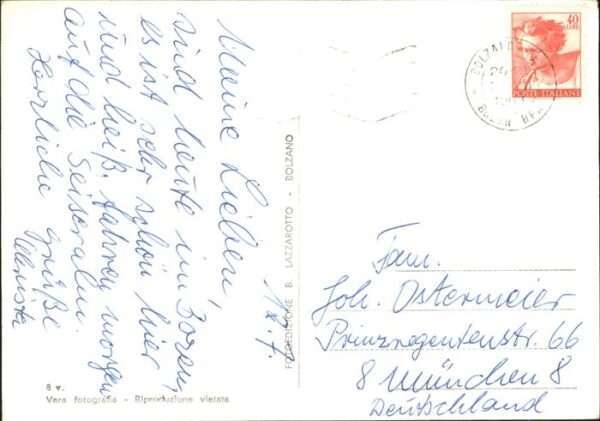 Meine Lieben,
sind heute in Bozen,
es ist sehr schön hier
und heiß. Fahren morgen
auf die Seiseralm.
Herzliche Grüße
8 v.
Vera fotografia - Riproduzione vietata
FOTOEDIZIONE B. LAZZAROTTO - BOLZANO
40
POSTE ITALIANE
BOLZANO
BOZEN
Fam.
Joh. Ostermeier
Prinzregentenstr. 66
8 München 8
Deutschland